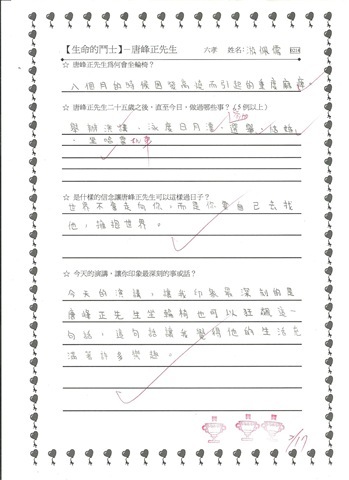 【生命的鬥士】－唐峰正先生 六孝 姓名:洪佩儒
☆ 唐峰正先生為何會坐輪椅？
八個月的時候因發高燒而引起的重度麻痺。
☆ 唐峰正先生二十五歲之後，直至今日，做過哪些事？(5例以上)
舉辦演講，泳渡日月潭，選舉，結婚，
☆ 是什樣的信念讓唐峰正先生可以這樣過日子？
世界不會走向你，而是你要自己去找
他，擁抱世界。
☆ 今天的演講，讓你印象最深刻的事或話？
今天的演講，讓我印象最深刻的是
唐峰正先生坐輪椅也可以狂飆這一
句話，這句話讓我覺得他的生活充
滿著許多樂趣。
2/17